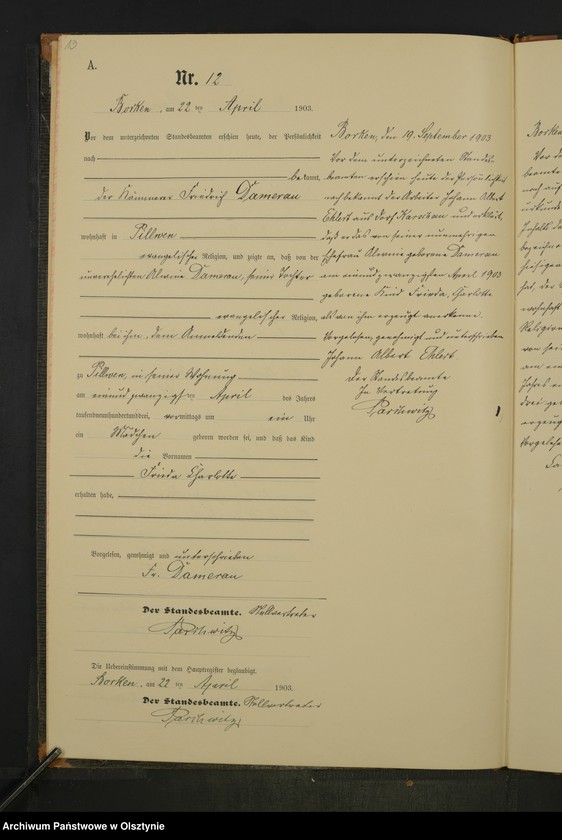 13
A.
Nr. 12
Borken, am 22 ten April 1903.
Vor dem unterzeichneten Standesbeamten erschien heute, der Persönlichkeit
nach
bekannt,
der Kämmerer Friedrich Damerau
wohnhaft in Pillwen
evangelischer Religion, und zeigte an, daß von der
unverehelichten Alwine Damerau, seiner Tochter
evangelischer Religion,
wohnhaft bei ihm, dem Anmeldenden
zu Pillwen, in seiner Wohnung
am einundzwanzigsten April des Jahres
tausendneunhundertunddrei, vormittags um ein Uhr
ein Mädchen geboren worden sei, und daß das Kind
die Vornamen
Frieda Charlotte
erhalten habe,
Vorgelesen, genehmigt und unterschrieben
Fr. Damerau
Der Standesbeamte. Stellvertreter
Parschwitz
Die Uebereinstimmung mit dem Hauptregister beglaubigt.
Borken, am 22 ten April 1903.
Der Standesbeamte. Stellvertreter
Parschwitz
Borken, den 19. September 1903
Vor dem unterzeichneten Standes
beamten erschien heute der Persönlichkeit
nach bekannt der Arbeiter Johann Albert
Ehlert aus Dorf und erklärt,
daß er das von seiner nunmehrigen
Ehefrau Alwine geborene Damerau
am einundzwanzigsten April 1903
geborene Kind Frieda, Charlotte
als von ihm erzeugt anerkenne.
Vorgelesen, genehmigt und unterschrieben
Johann Albert Ehlert.
Der Standesbeamte
In Vertretung
Parschwitz
Archiwum Państwowe w Olsztynie